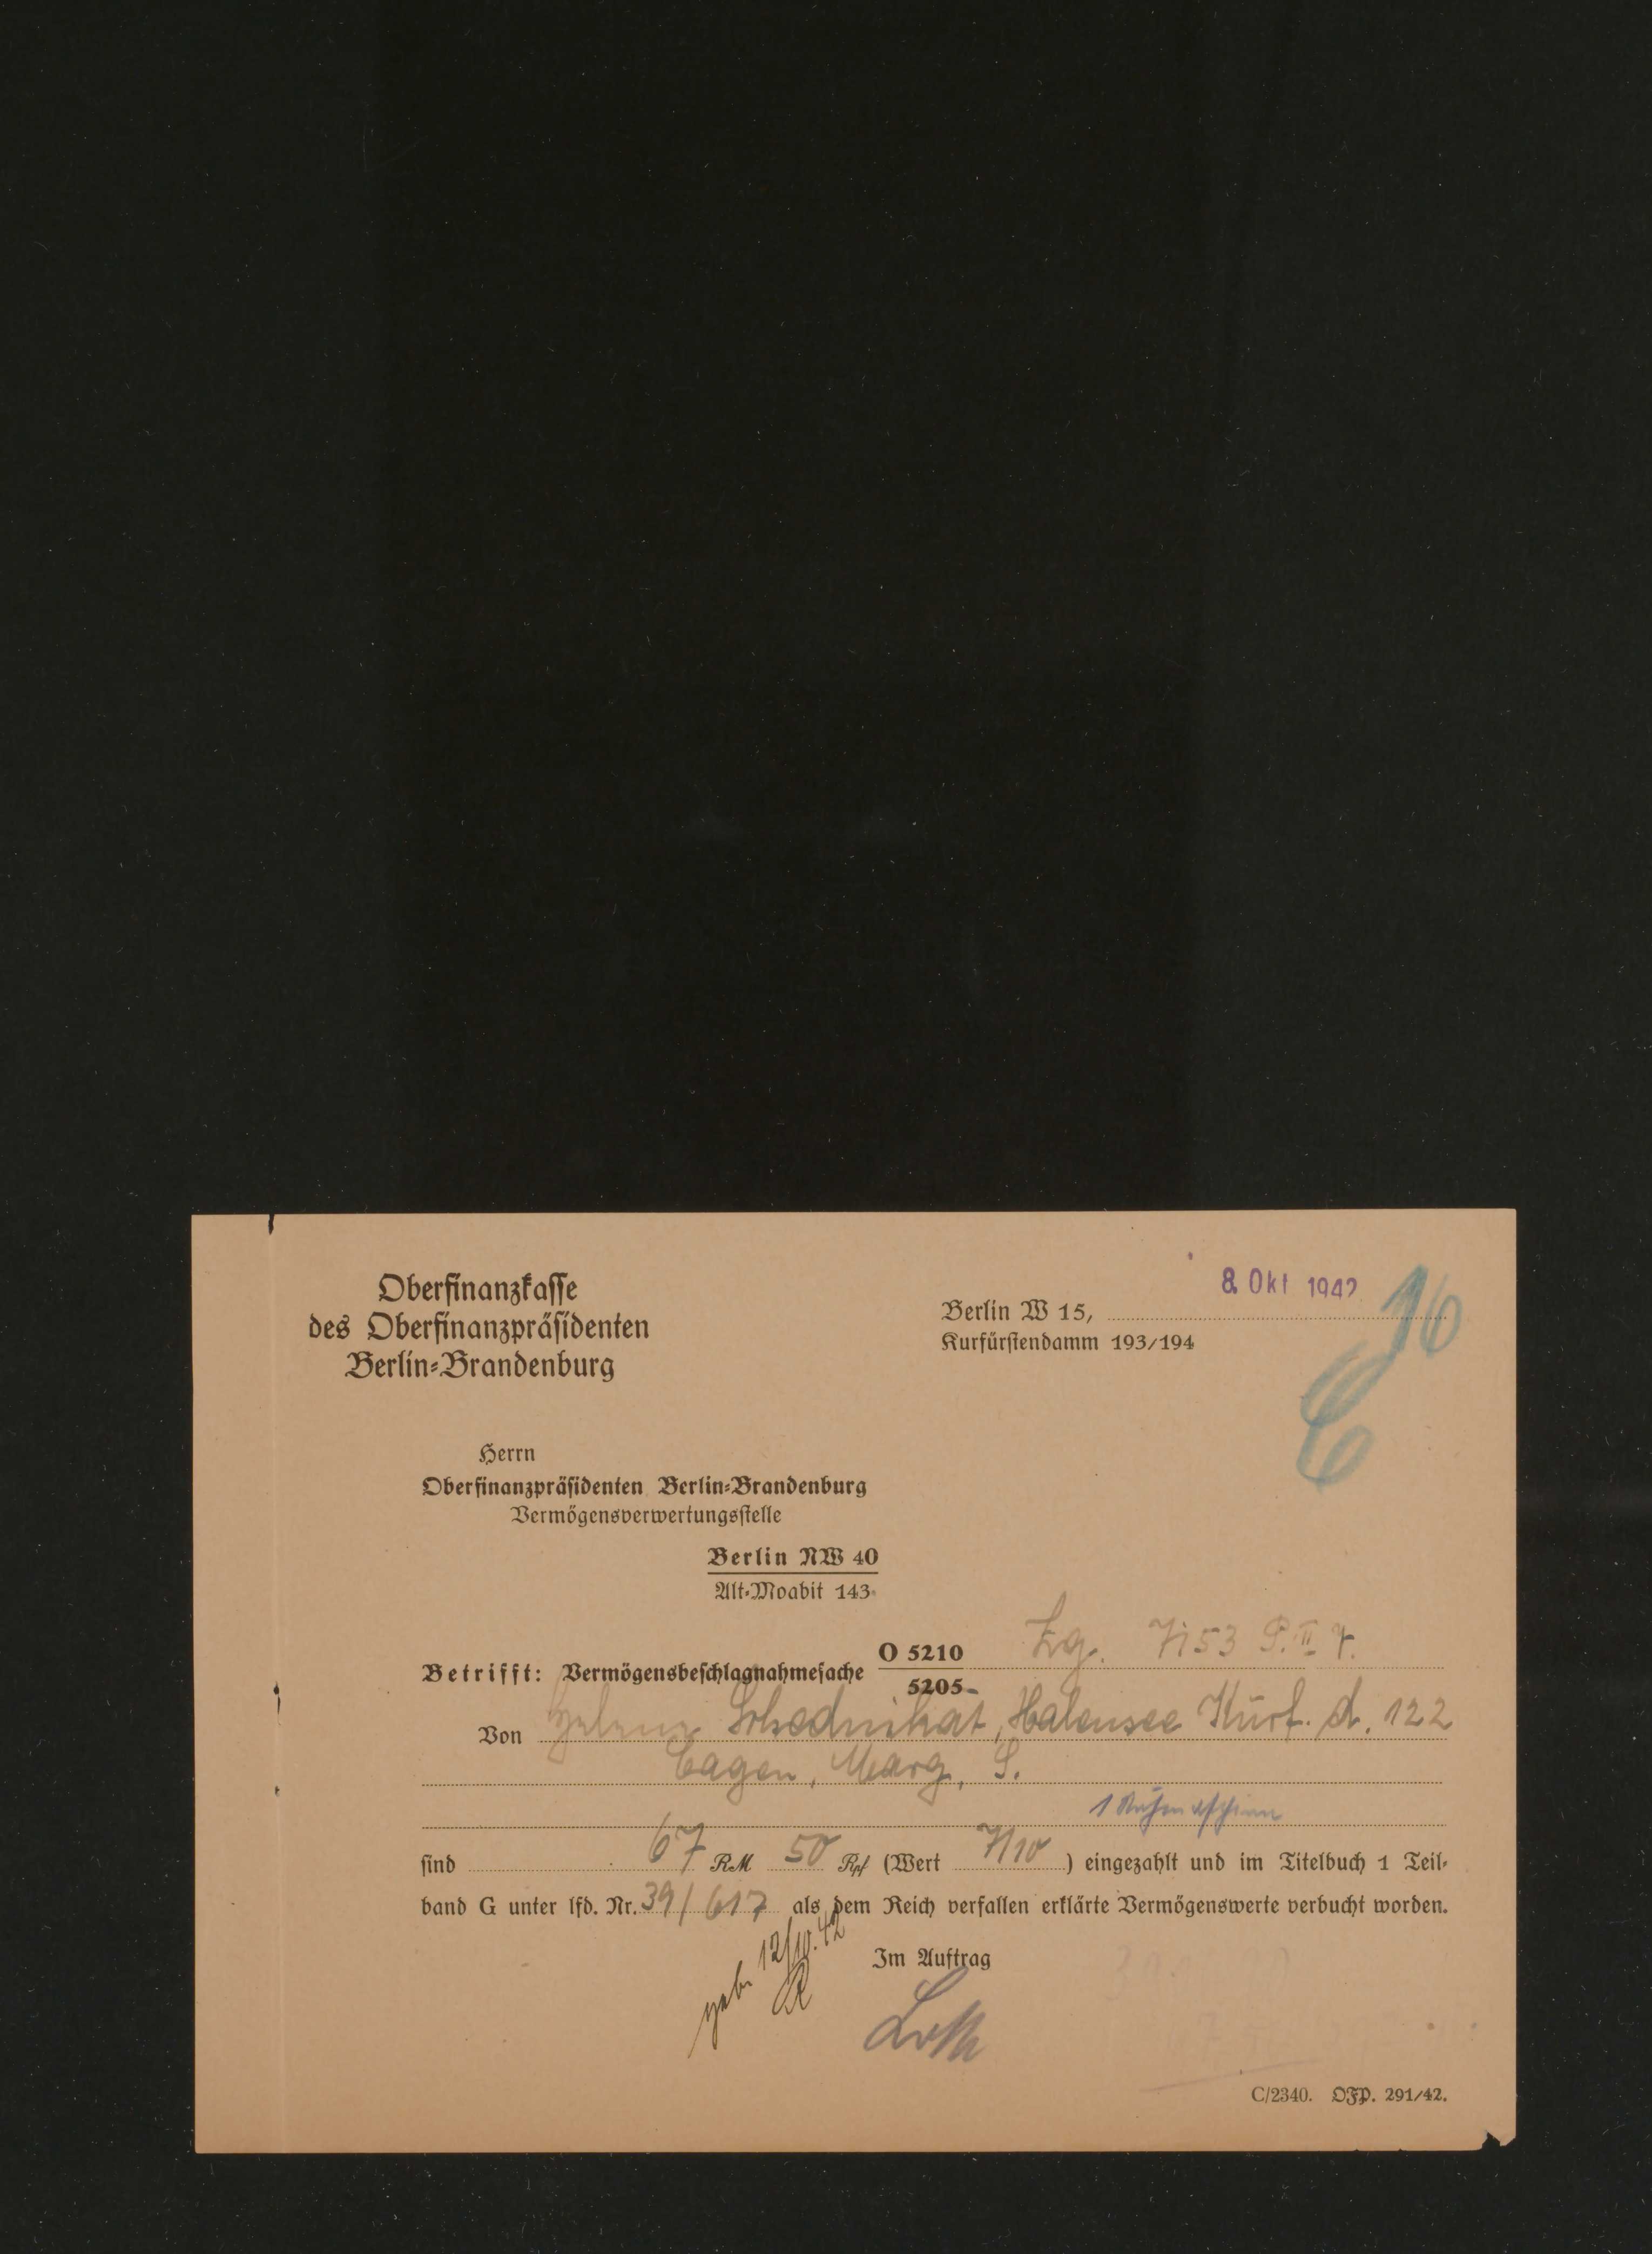 Oberfinanzkasse
des Oberfinanzpräsidenten
Berlin-Brandenburg
8. Okt 1942
Berlin W 15,
Kurfürstendamm 193/194
16
C
Herrn
Oberfinanzpräsidenten Berlin-Brandenburg
Vermögensverwertungsstelle
Berlin NW 40
Alt-Moabit 143
Betrifft: Vermögensbeschlagnahmesache O 5210
5205-
Von Halensee Kurf. d. 122
Cagen, Marg. S.
1 Nähmaschine
sind 67 RM 50 Rpf (Wert 7/10) eingezahlt und im Titelbuch 1 Teil-
band G unter lfd. Nr. 39/617 als dem Reich verfallen erklärte Vermögenswerte verbucht worden.
12/10.42
Im Auftrag
C/2340. OFP. 291/42.